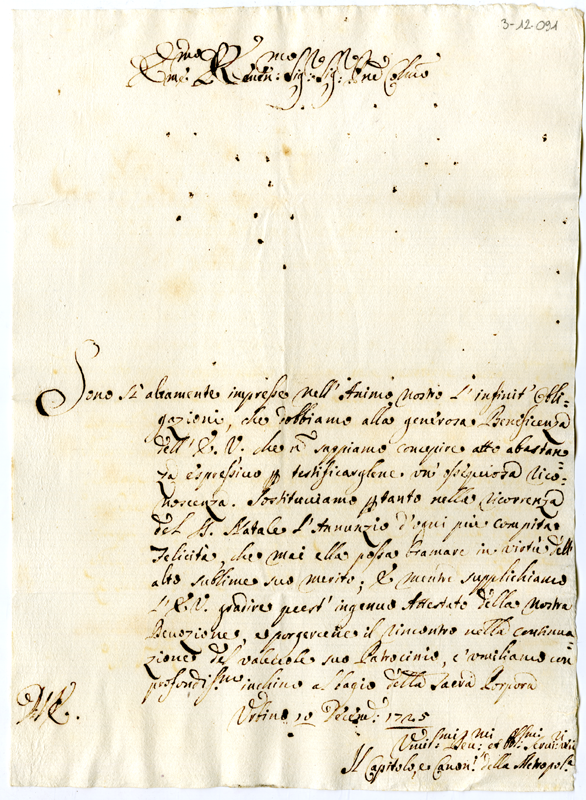 3-12-091
Em.o e Rmo: Sig: Sig: Pne Colmo
Sono sì altamente impresse nell' Animo nostro l' infinit' Obli=
gazioni, che dobbiamo alla generosa Beneficenza
dell' E. V. che ñ sappiamo concepire atto abastan=
za espressivo p testificarglene un' ossequiosa rico=
noscenza. Sostituiamo p tanto nella ricorrenza
del S. Natale l' Annunzio d' ogni più compita
Felicità, che mai ella possa bramare in virtù dell'
alto sublime suo merito; E mentre supplichiamo
l' E. V. gradire quest' ingenuo Attestato della nostra
Devozione, e porgercene il rincontro nella continua=
zione del valevole suo Patrocinio, c' umiliamo con
profondis.mo inchino al bagio della Sacra Porpora
D. V. E.
Urbino 10 Decemb: 1725
Umil.mi Dev.mi et Obl.mi Serui veri
Il Capitolo, e Canon.ci della Metropol.a